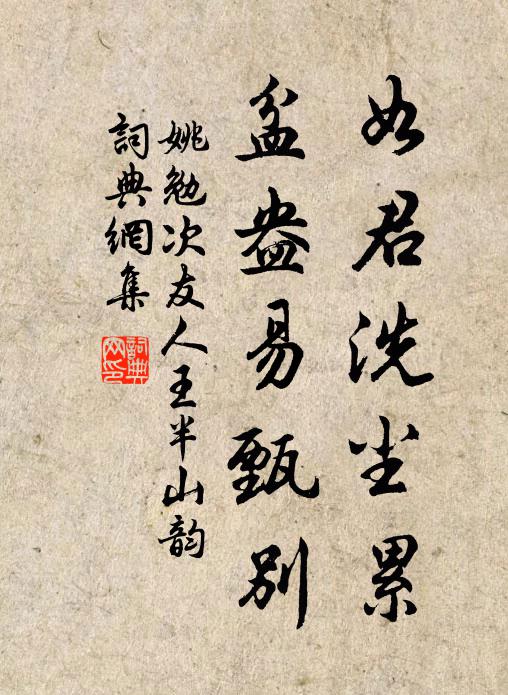 如君洗尘累
盆盎易甄别
姚勉次友人王半山韵
詞典網集
詞典网印